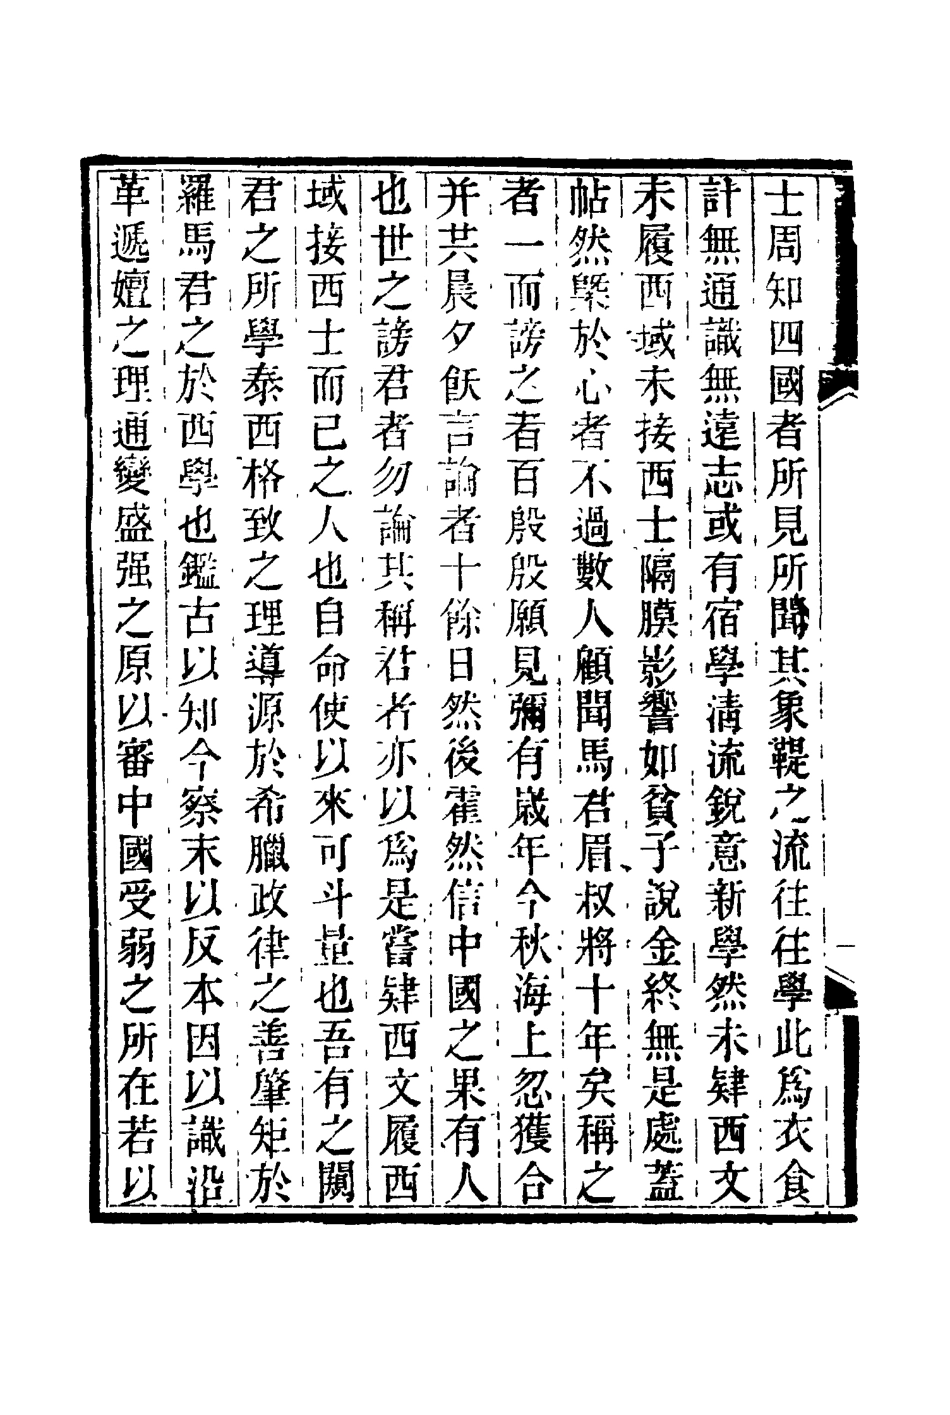 士周知四國者所見所聞其象鞮之流往往學此爲衣食
計無通識無遠志或有宿學淸流銳意新學然未肄西文
未履西域未接西士隔膜影響如貧子說金終無是處蓋
帖然槩於心者不過數人顧聞馬君眉叔將十年矣稱之
者一而謗之者百殷殷願見彌有歲年今秋海上忽獲合
并共晨夕飫言論者十餘日然後霍然信中國之果有人
也世之謗君者勿論其稱君者亦以爲是嘗肄西文履西
域接西士而已之人也自命使以來可斗量也吾有之闚
君之所學泰西格致之理導源於希臘政律之善肇矩於
羅馬君之於西學也鑑古以知今察末以反本因以識沿
革遞嬗之理通變盛强之原以審中國受弱之所在若以